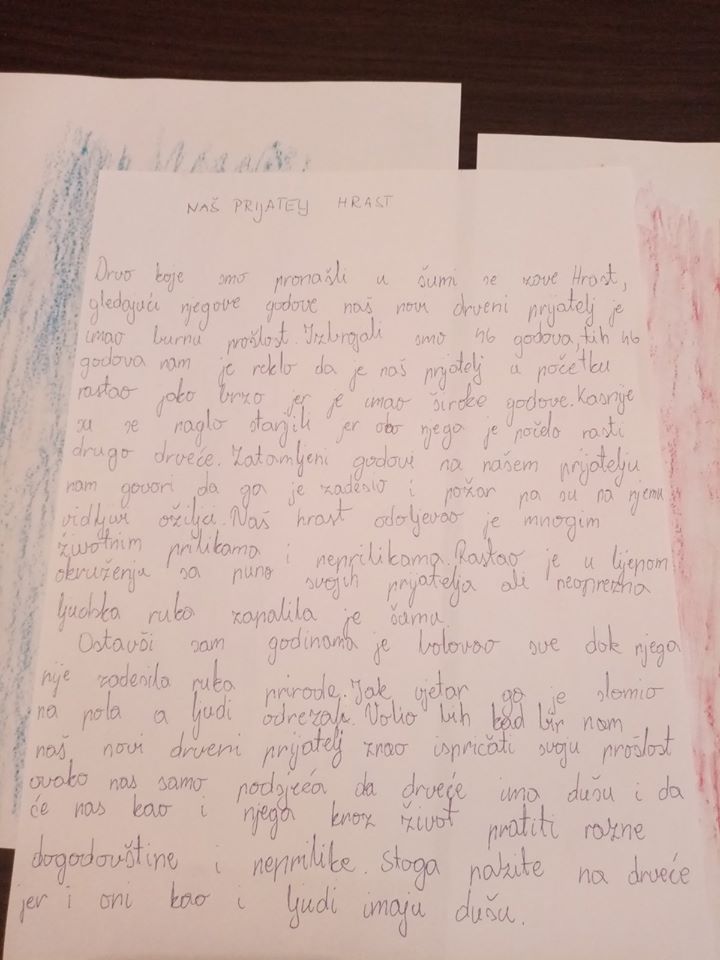 NAŠ PRIJATELJ HRAST
Drvo koje smo pronašli u šumi se zove Hrast,
gledajući njegove godove naš novi drveni prijatelj je
imao burnu prošlost. Izbrojali smo 46 godova, tih 46
godova nam je reklo da je naš prijatelj u početku
rastao jako brzo jer je imao široke godove. Kasnije
su se naglo stanjili jer oko njega je počelo rasti
drugo drveće. Zatamljeni godovi na našem prijatelju
nam govori da ga je zadesio i požar pa su na njemu
vidljivi ožiljci. Naš hrast odoljevao je mnogim
životnim prilikama i neprilikama. Rastao je u lijepom
okruženju sa puno svojih prijatelja ali neoprezna
ljudska ruka zapalila je šumu.
Ostavši sam godinama je bolovao sve dok njega
nije zadesila ruka prirode. Jak vjetar ga je slomio
na pola a ljudi odrezali. Volio bih kad bi nam
naš novi drveni prijatelj znao ispričati svoju prošlost
ovako nas samo podsjeća da drveće ima dušu i da
će nas kao i njega kroz život pratiti razne
dogodovštine i neprilike. Stoga pazite na drveće
jer i oni kao i ljudi imaju dušu.